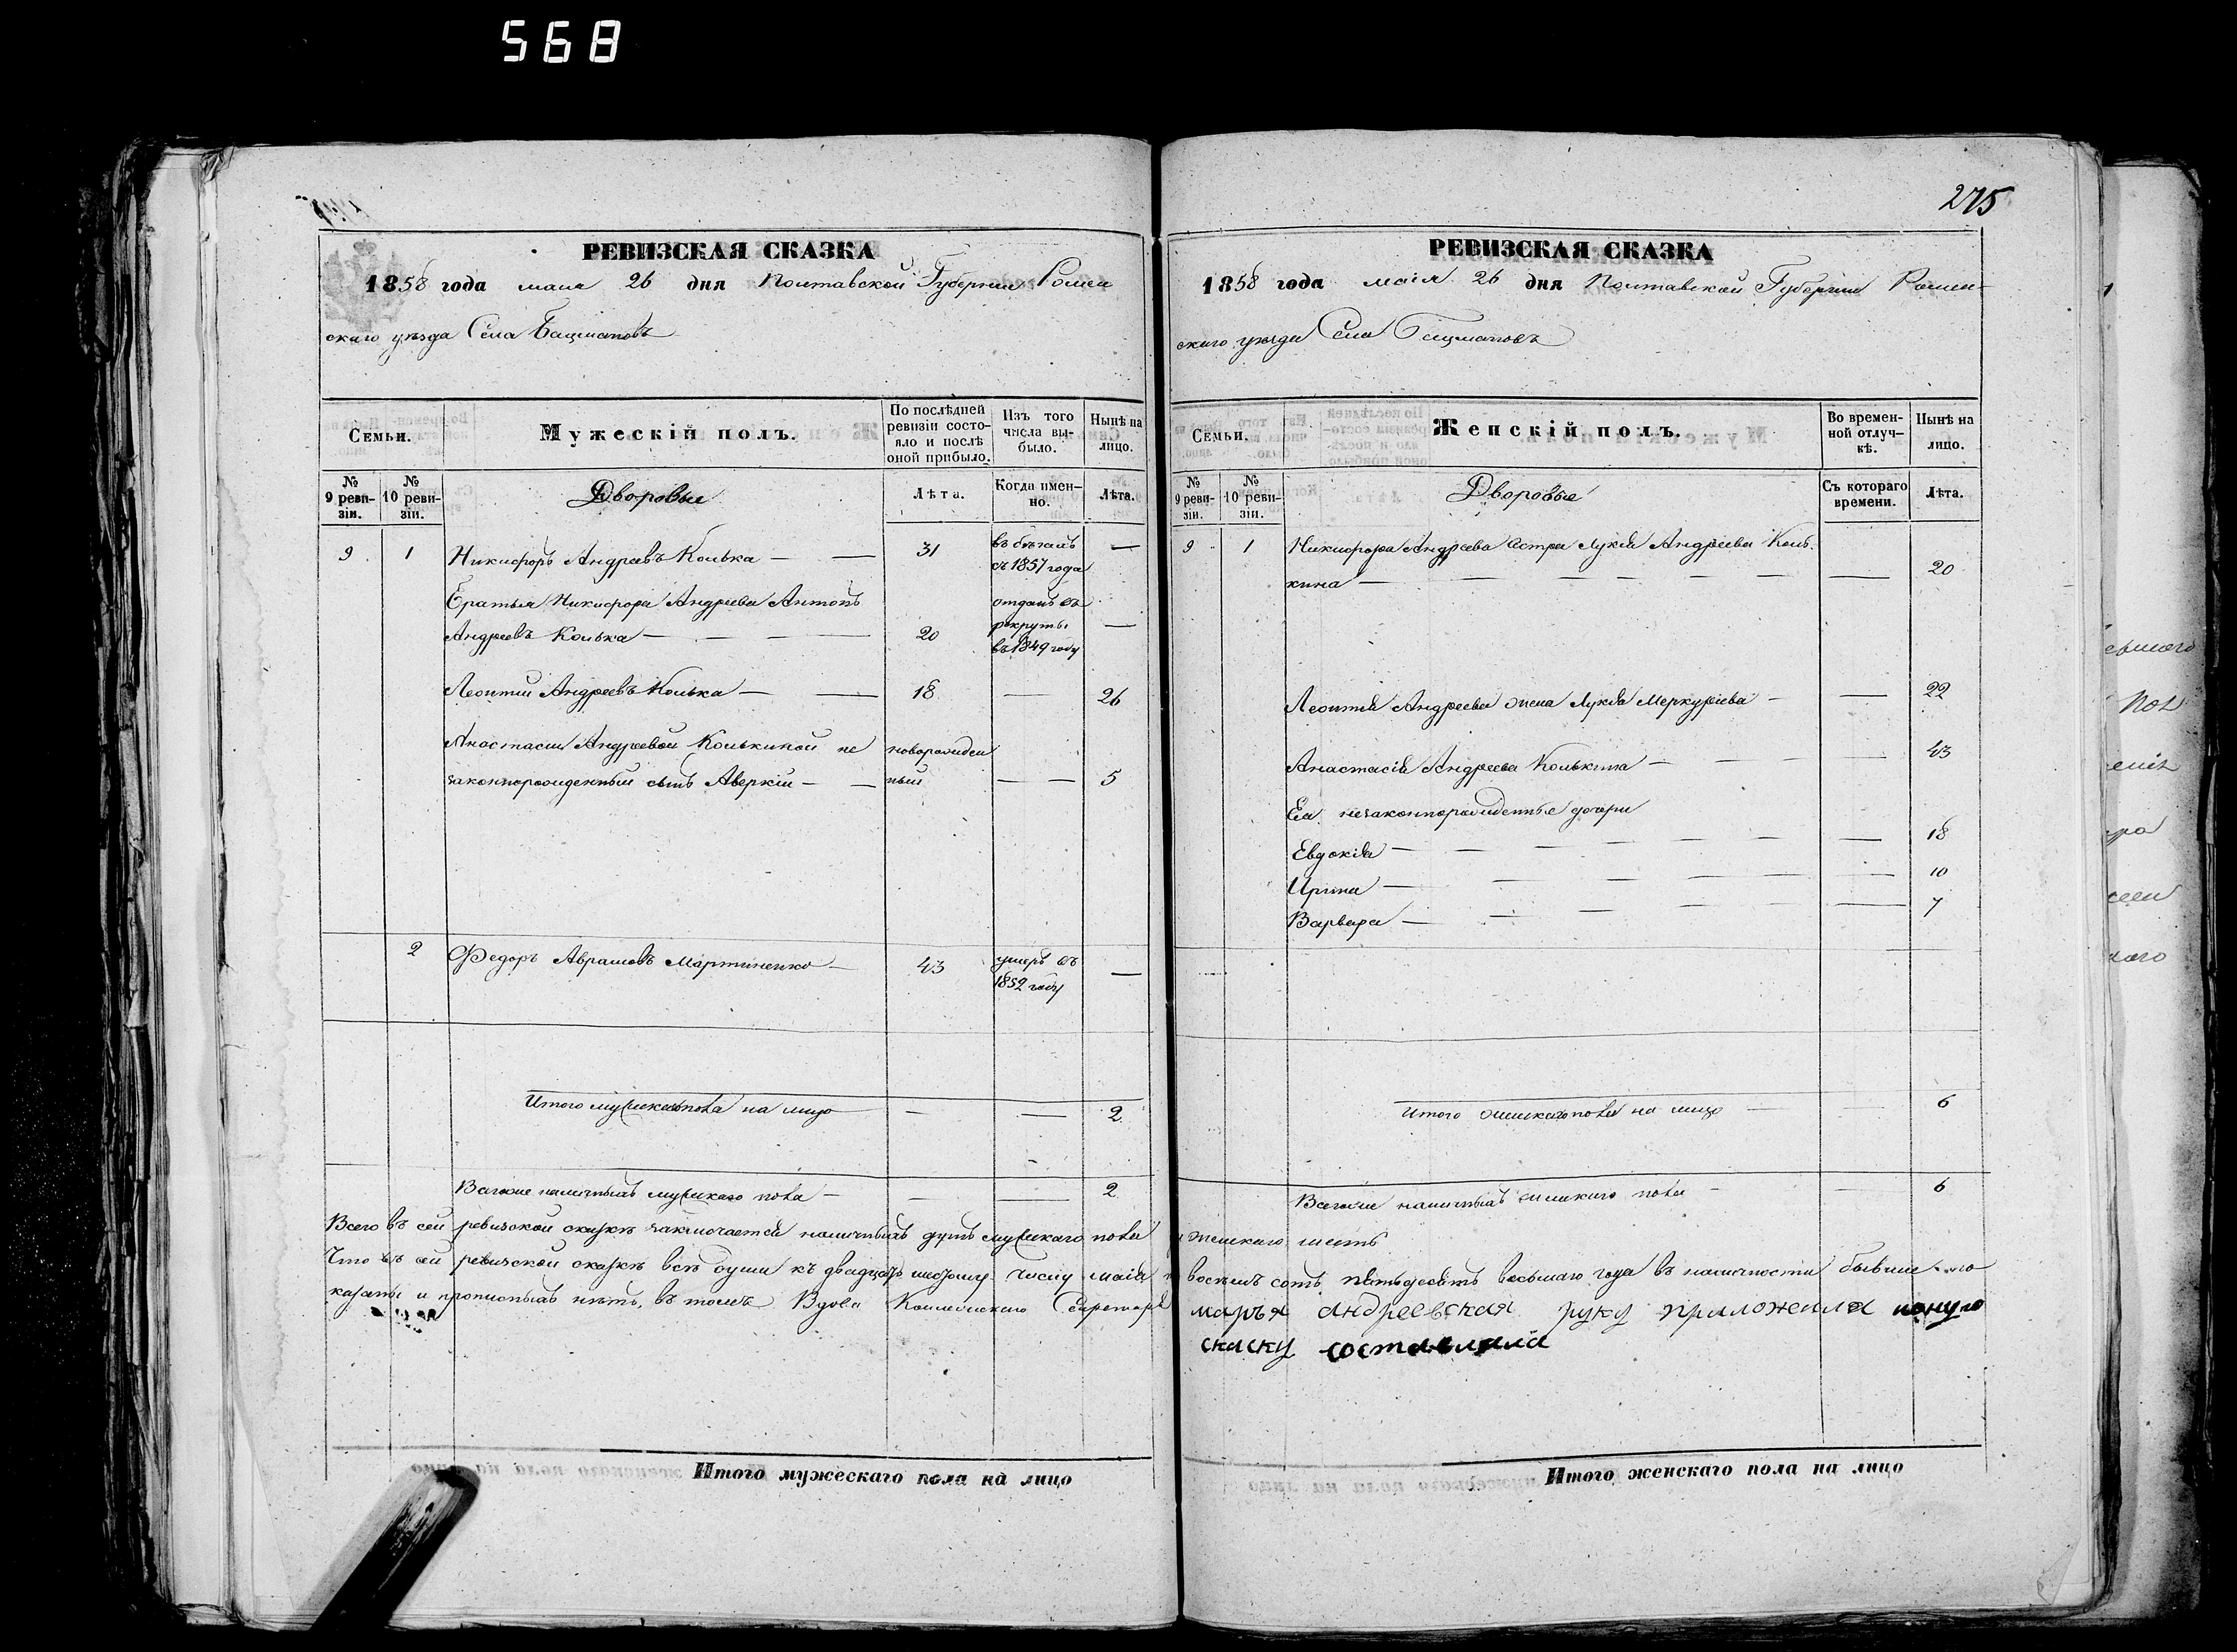 568
275
РЕВИЗСКАЯ СКАЗКА
1858 года маия 26 дня Полтавской Губернии Ромен
скаго уѣзда Села Бацманов
Семьи.
Мужескій полъ.
По послѣдней ревизіи состояло и послѣ оной прибыло.
Изъ того числа выбыло.
Нынѣ на лицо.
№ 9 ревизіи.
№ 10 ревизіи.
Дворовые
Лѣта.
Когда именно.
Лѣта.
9 1 Никифоръ Андреевъ Колька — — 31 въ бѣгахъ съ 1857 года —
Братья Никифора Андреева Антонъ
Андреевъ Колька — — — — 20 отданъ въ рекруты въ 1849 году —
Леонтий Андреевъ Колька — — 18 — 26
Анастасии Андреевой Колькиной не
законнорожденный сынъ Аверкій — — новорожден ный — — 5
2 Федоръ Аврамовъ Мартиненко — 43 умеръ въ 1852 году —
Итого мужескаго пола на лицо — — 2
Всего же наличныхъ мужескаго пола — — — 2
РЕВИЗСКАЯ СКАЗКА
1858 года маія 26 дня Полтавской Губернии Ромен-
скаго уѣзда Села Бацманов
Семьи.
Женскій полъ.
Во временной отлучкѣ.
Нынѣ на лицо.
№ 9 ревизіи.
№ 10 ревизіи.
Дворовые
Съ котораго времени.
Лѣта.
9 1 Никифора Андреева сестра Лукія Андреева Коль-
кина — — — — — — — 20
Леонтія Андреева жена Лукія Меркуріева — — 22
Анастасія Андреева Колькина — — — — 43
Ея незаконнорожденные дочери
Евдокія — — — — — — — 18
Ирина — — — — — — 10
Варвара — — — — — — 7
Итого женскаго пола на лицо — — 6
Всего же наличныхъ женскаго пола — — 6
Всего въ сей ревизской сказкѣ заключается наличныхъ душъ мужескаго пола и женскаго шесть
Что въ сей ревизской сказкѣ всѣ души къ двадцать шестому числу маія восемь сотъ пятьдесятъ восьмаго года въ наличности бывшие
казаны и прописныхъ нѣтъ, въ томъ Вдова Коллежскаго Секретаря марья андреевская руку приложила
скаску составляла
Итого мужескаго пола на лицо
Итого женскаго пола на лицо